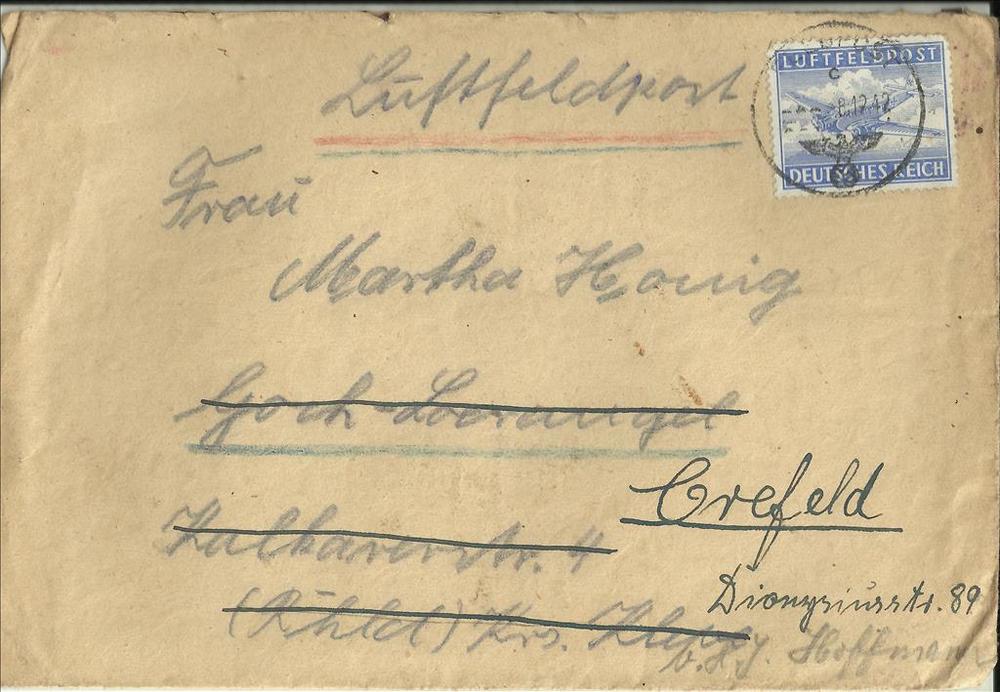 Luftfeldpost
LUFTFELDPOST
c
8.12.42
DEUTSCHES REICH
Frau
Martha Honig
Goch
Crefeld
Kalkarerstr. 4
Dionysiusstr. 89
Krs. Kleve
b. H. J. Hoffmann